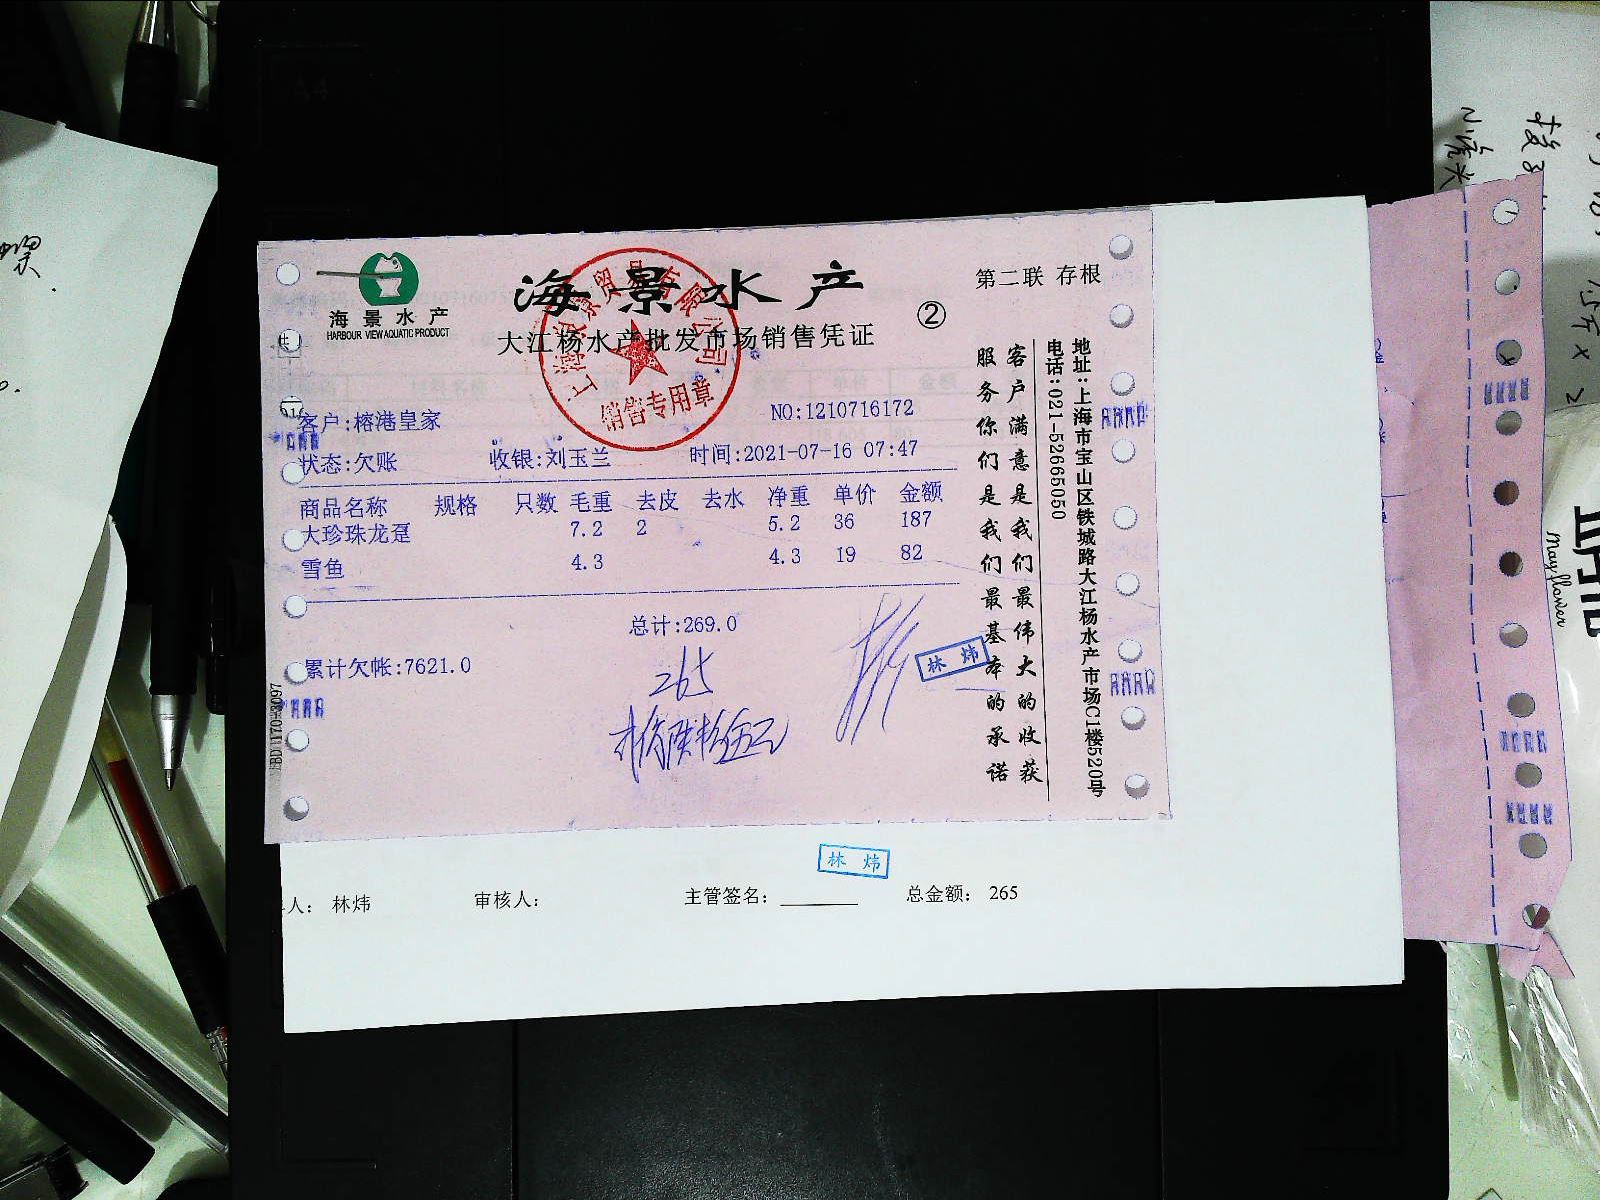 海景水产
HARBOUR VIEW AQUATIC PRODUCT
海景水产
大江杨水产批发市场销售凭证
②
第二联 存根
销售专用章
客户:榕港皇家
NO:1210716172
状态:欠账 收银:刘玉兰 时间:2021-07-16 07:47
商品名称 规格 只数 毛重 去皮 去水 净重 单价 金额
大珍珠龙趸 7.2 2 5.2 36 187
雪鱼 4.3 4.3 19 82
总计:269.0
累计欠帐:7621.0
265
林 炜
地址:上海市宝山区铁城路大江杨水产市场C1楼520号
电话:021-52665050
客户满意是我们最伟大的收获
服务你们是我们最基本的承诺
林 炜
人: 林炜 审核人: 主管签名: 总金额: 265
Mayflower